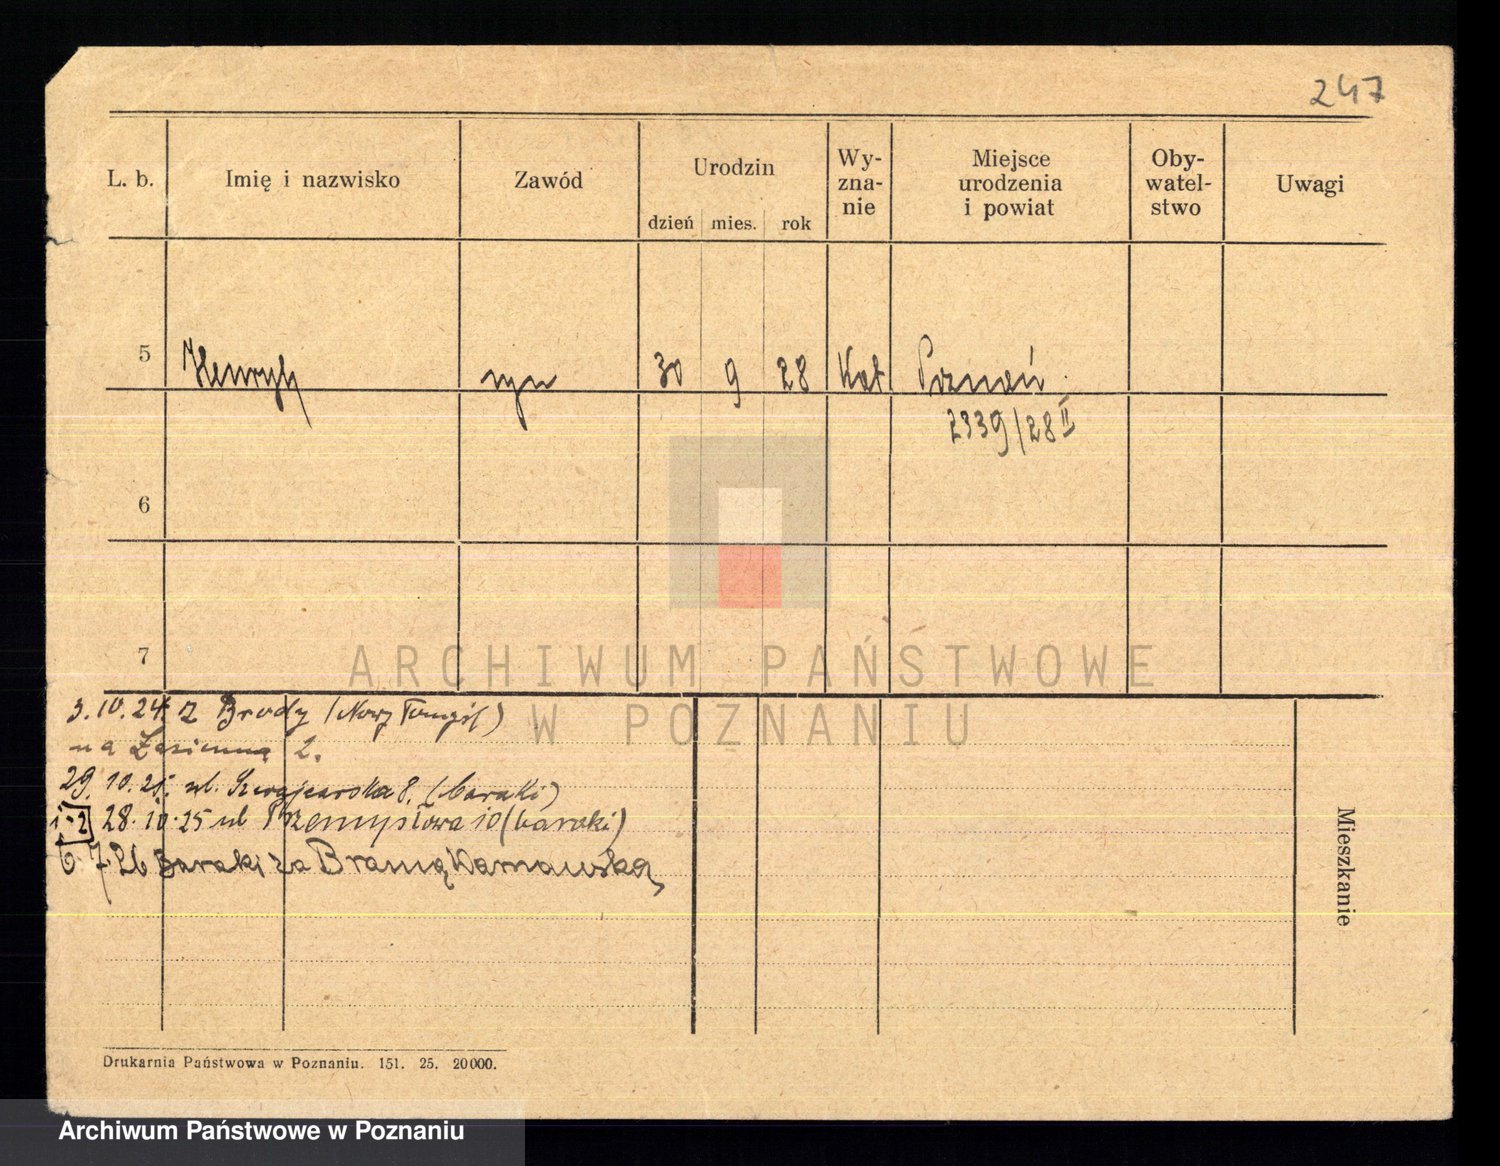 247
L. b. Imię i nazwisko Zawód Urodzin Wy-zna-nie Miejsce urodzenia i powiat Oby-watel-stwo Uwagi
dzień mies. rok
5 Henryk syn 30 9 28 Kat Poznań
2339/28 II
6
7
ARCHIWUM PAŃSTWOWE
W POZNANIU
3.10.24 z Brody (Nowy Tomyśl)
na 2.
29.10.25. ul. Szwajcarska 8. (baraki)
1-2 28.10.25 ul Przemysłowa 10 (baraki)
6.7.26 Baraki za Bramą
Mieszkanie
Drukarnia Państwowa w Poznaniu. 151. 25. 20000.
Archiwum Państwowe w Poznaniu